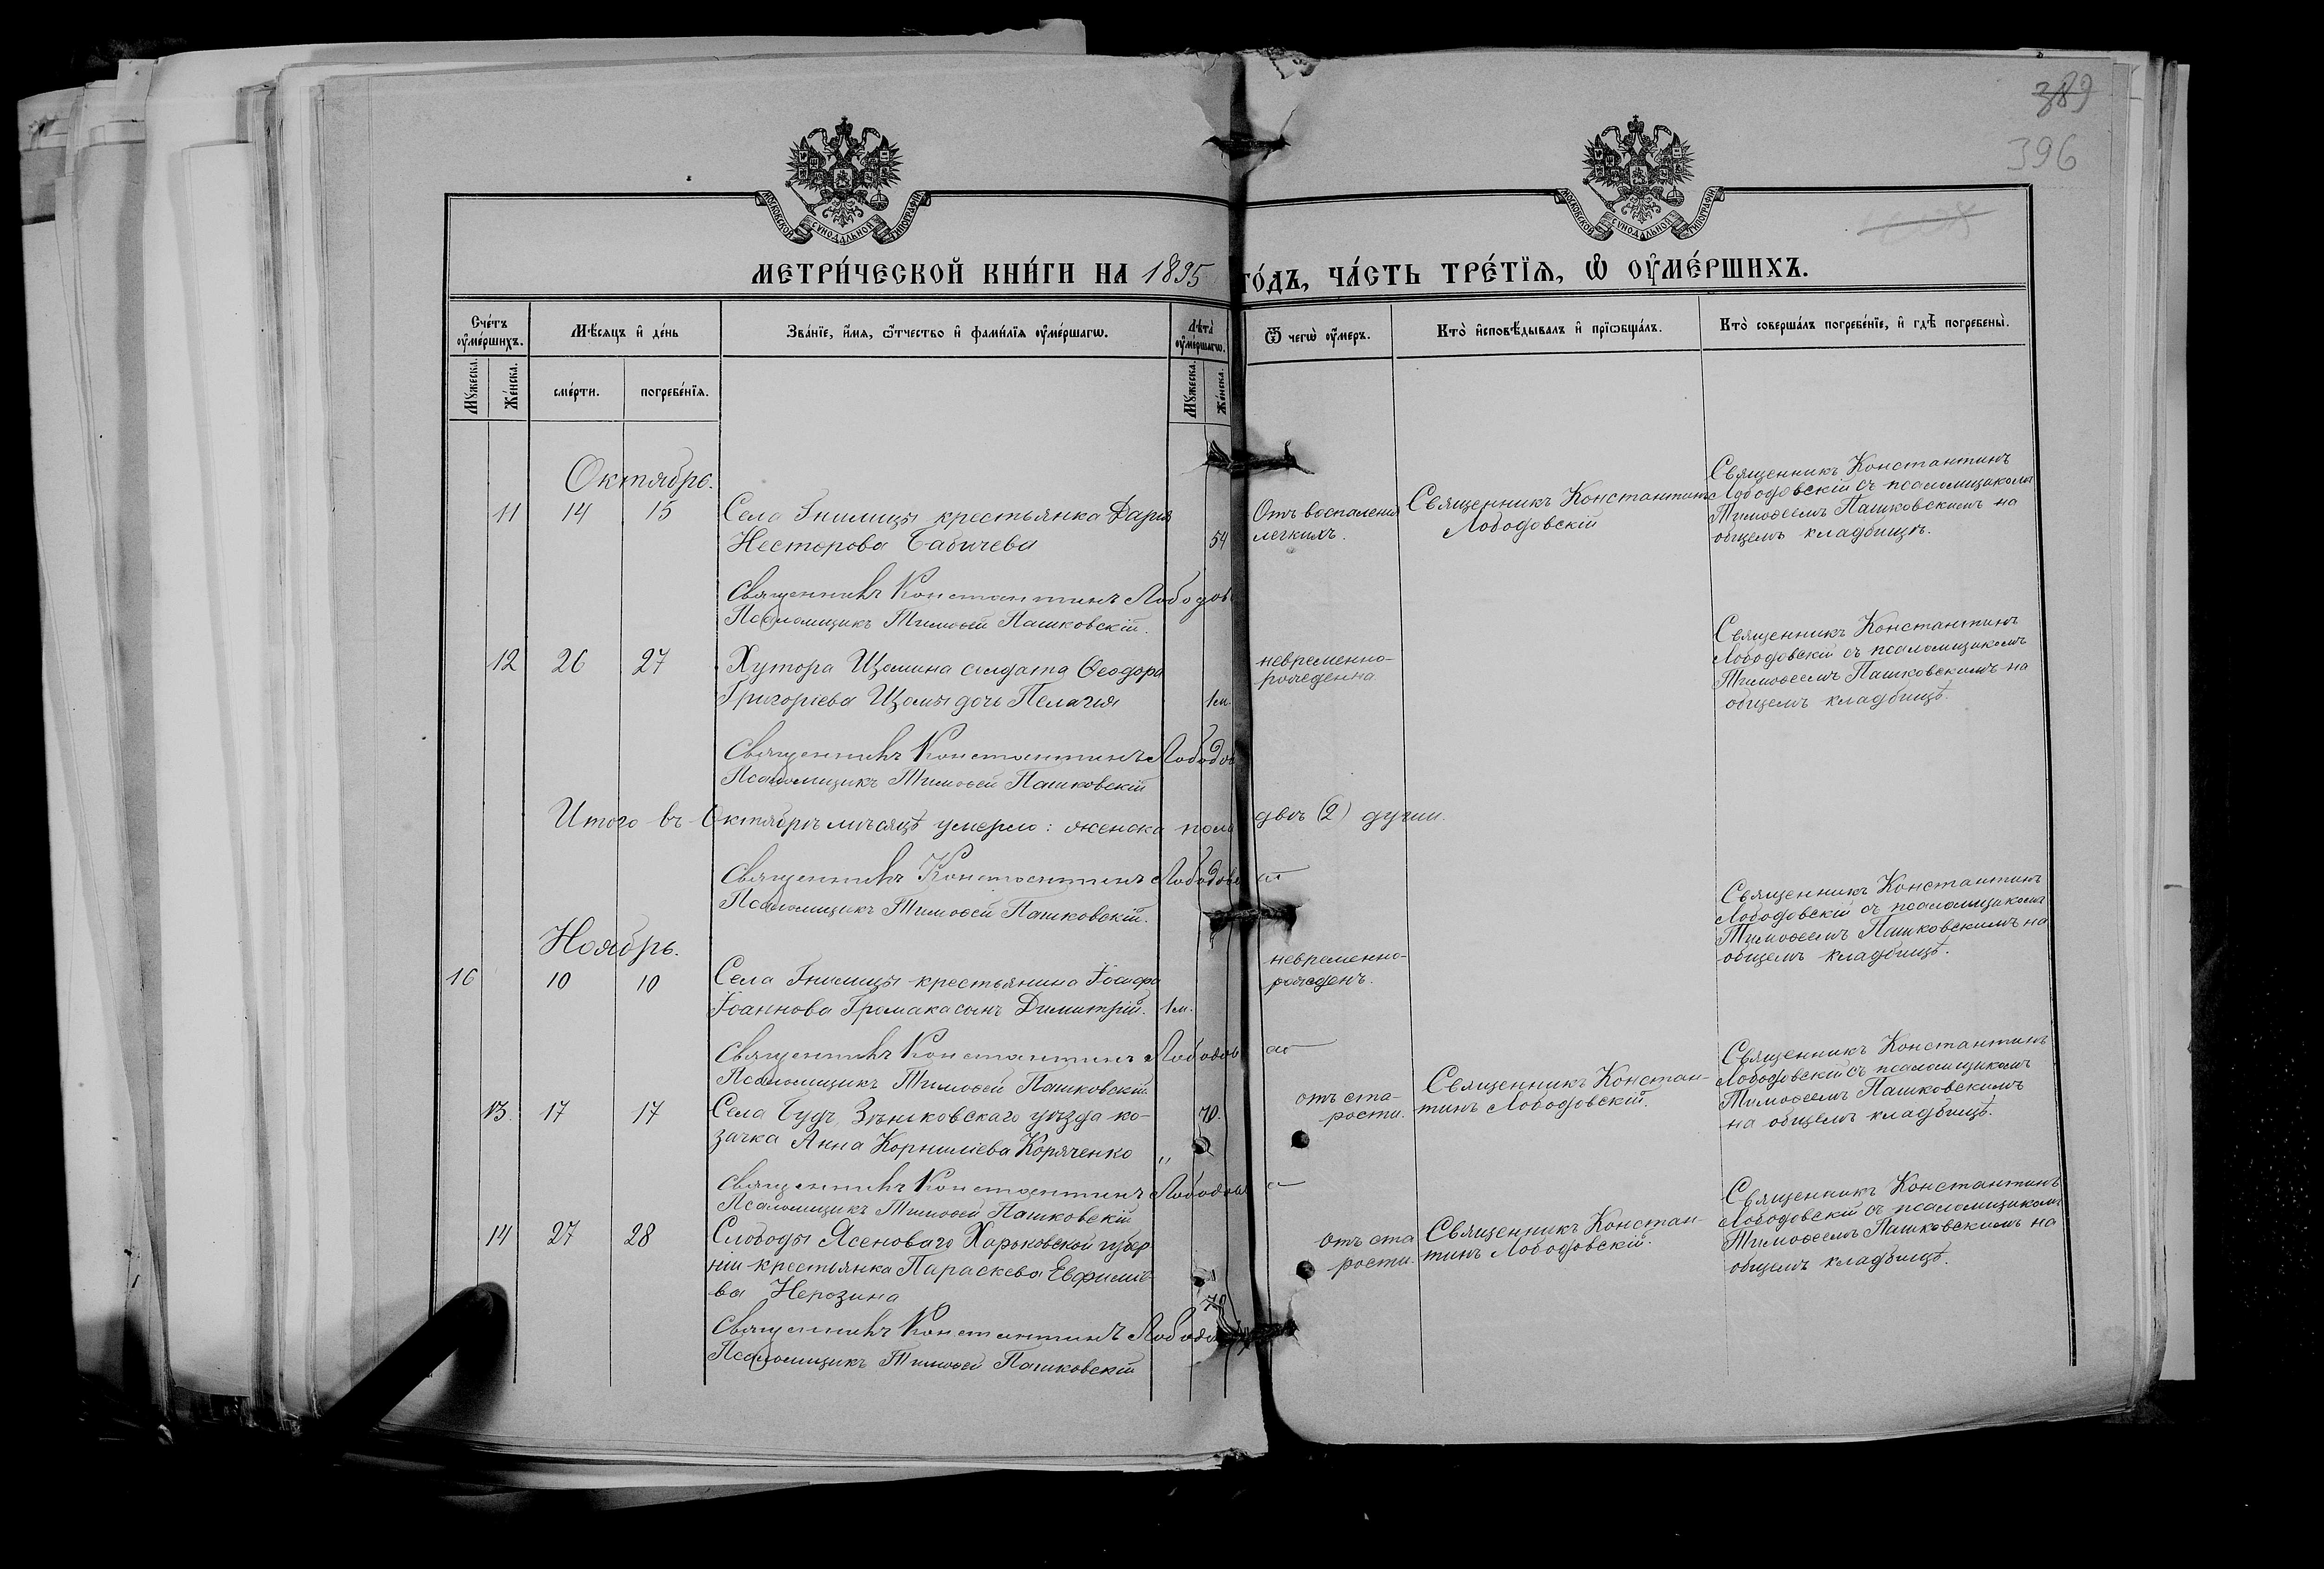 389
396
МОСКОВСКОЙ СѴНОДАЛЬНОЙ ТИПОГРАФІИ
МОСКОВСКОЙ СѴНОДАЛЬНОЙ ТИПОГРАФІИ
МЕТРИ́ЧЕСКОЙ КНИ́ГИ НА 1895 ГО́ДЪ, ЧА́СТЬ ТРЕ́ТЇѦ, Ѡ҆ ОУ҆МЕ́РШИХЪ.
Сче́тъ оу҆ме́ршихъ.
Мѣ́сяцъ и҆ де́нь
Зва́нїе, и҆́мя, ѻ҆́тчество и҆ фами́лїя оу҆ме́ршагѡ.
Лѣта̀ оу҆ме́ршагѡ.
Ѿ чегѡ̀ оу҆́меръ.
Кто̀ и҆сповѣ́дывалъ и҆ прїѡбща́лъ.
Кто̀ соверша́лъ погребе́нїе, и҆ гдѣ̀ погребены̀.
Мꙋ́жеска.
Же́нска.
сме́рти.
погребе́нїя.
Мꙋ́жеска.
Же́нска.
Октябрь.
11 14 15 Села Гнилицы крестьянка Дарія
Несторова Бабичева 54
Отъ воспаленія
легкихъ.
Священникъ Константинъ
Лободовскій
Священникъ Константинъ
Лободовскій съ псаломщикомъ
Тимоѳеемъ Пашковскимъ на
общемъ кладбищѣ.
Священникъ Константинъ Лободов
Псаломщикъ Тимоѳей Пашковскій.
12 26 27 Хутора Щомина солдата Ѳеодора
Григоріева Щомы дочь Пелагія 1м.
невременно-
рождена
Священникъ Константинъ
Лободовскій съ псаломщикомъ
Тимоѳеемъ Пашковскимъ на
общемъ кладбищѣ.
Священникъ Константинъ Лободов
Псаломщикъ Тимоѳей Пашковскій
Итого въ Октябрѣ мѣсяцѣ умерло: женска пола двѣ (2) души.
Священникъ Константинъ Лободовс
Псаломщикъ Тимоѳей Пашковскій.
Ноябрь.
16 10 10 Села Гнилицы крестьянина
Іоаннова Громака сынъ Димитрій. 1м.
невременно-
рожденъ.
Священникъ Константинъ
Лободовскій съ псаломщикомъ
Тимоѳеемъ Пашковскимъ на
общемъ кладбищѣ.
Священникъ Константинъ Лободов
Псаломщикъ Тимоѳей Пашковскій
13. 17 17 Села Будъ, Зѣньковскаго уѣзда ко-
зачка Анна Корниліева Коряченко „ 70.
отъ ста-
рости.
Священникъ Констан-
тинъ Лободовскій.
Священникъ Константинъ
Лободовскій съ псаломщикомъ
Тимоѳеемъ Пашковскимъ
на общемъ кладбищѣ.
Священникъ Константинъ Лободов
Псаломщикъ Тимоѳей Пашковскій
14 27 28 Слободы Ясеноваго Харьковской губер
ніи крестьянка Параскева Евфиміе
ва Нерозина 70
отъ ста
рости.
Священникъ Констан-
тинъ Лободовскій.
Священникъ Константинъ
Лободовскій съ псаломщикомъ
Тимоѳеемъ Пашковскимъ на
общемъ кладбищѣ.
Священникъ Константинъ Лободов
Псаломщикъ Тимоѳей Пашковскій